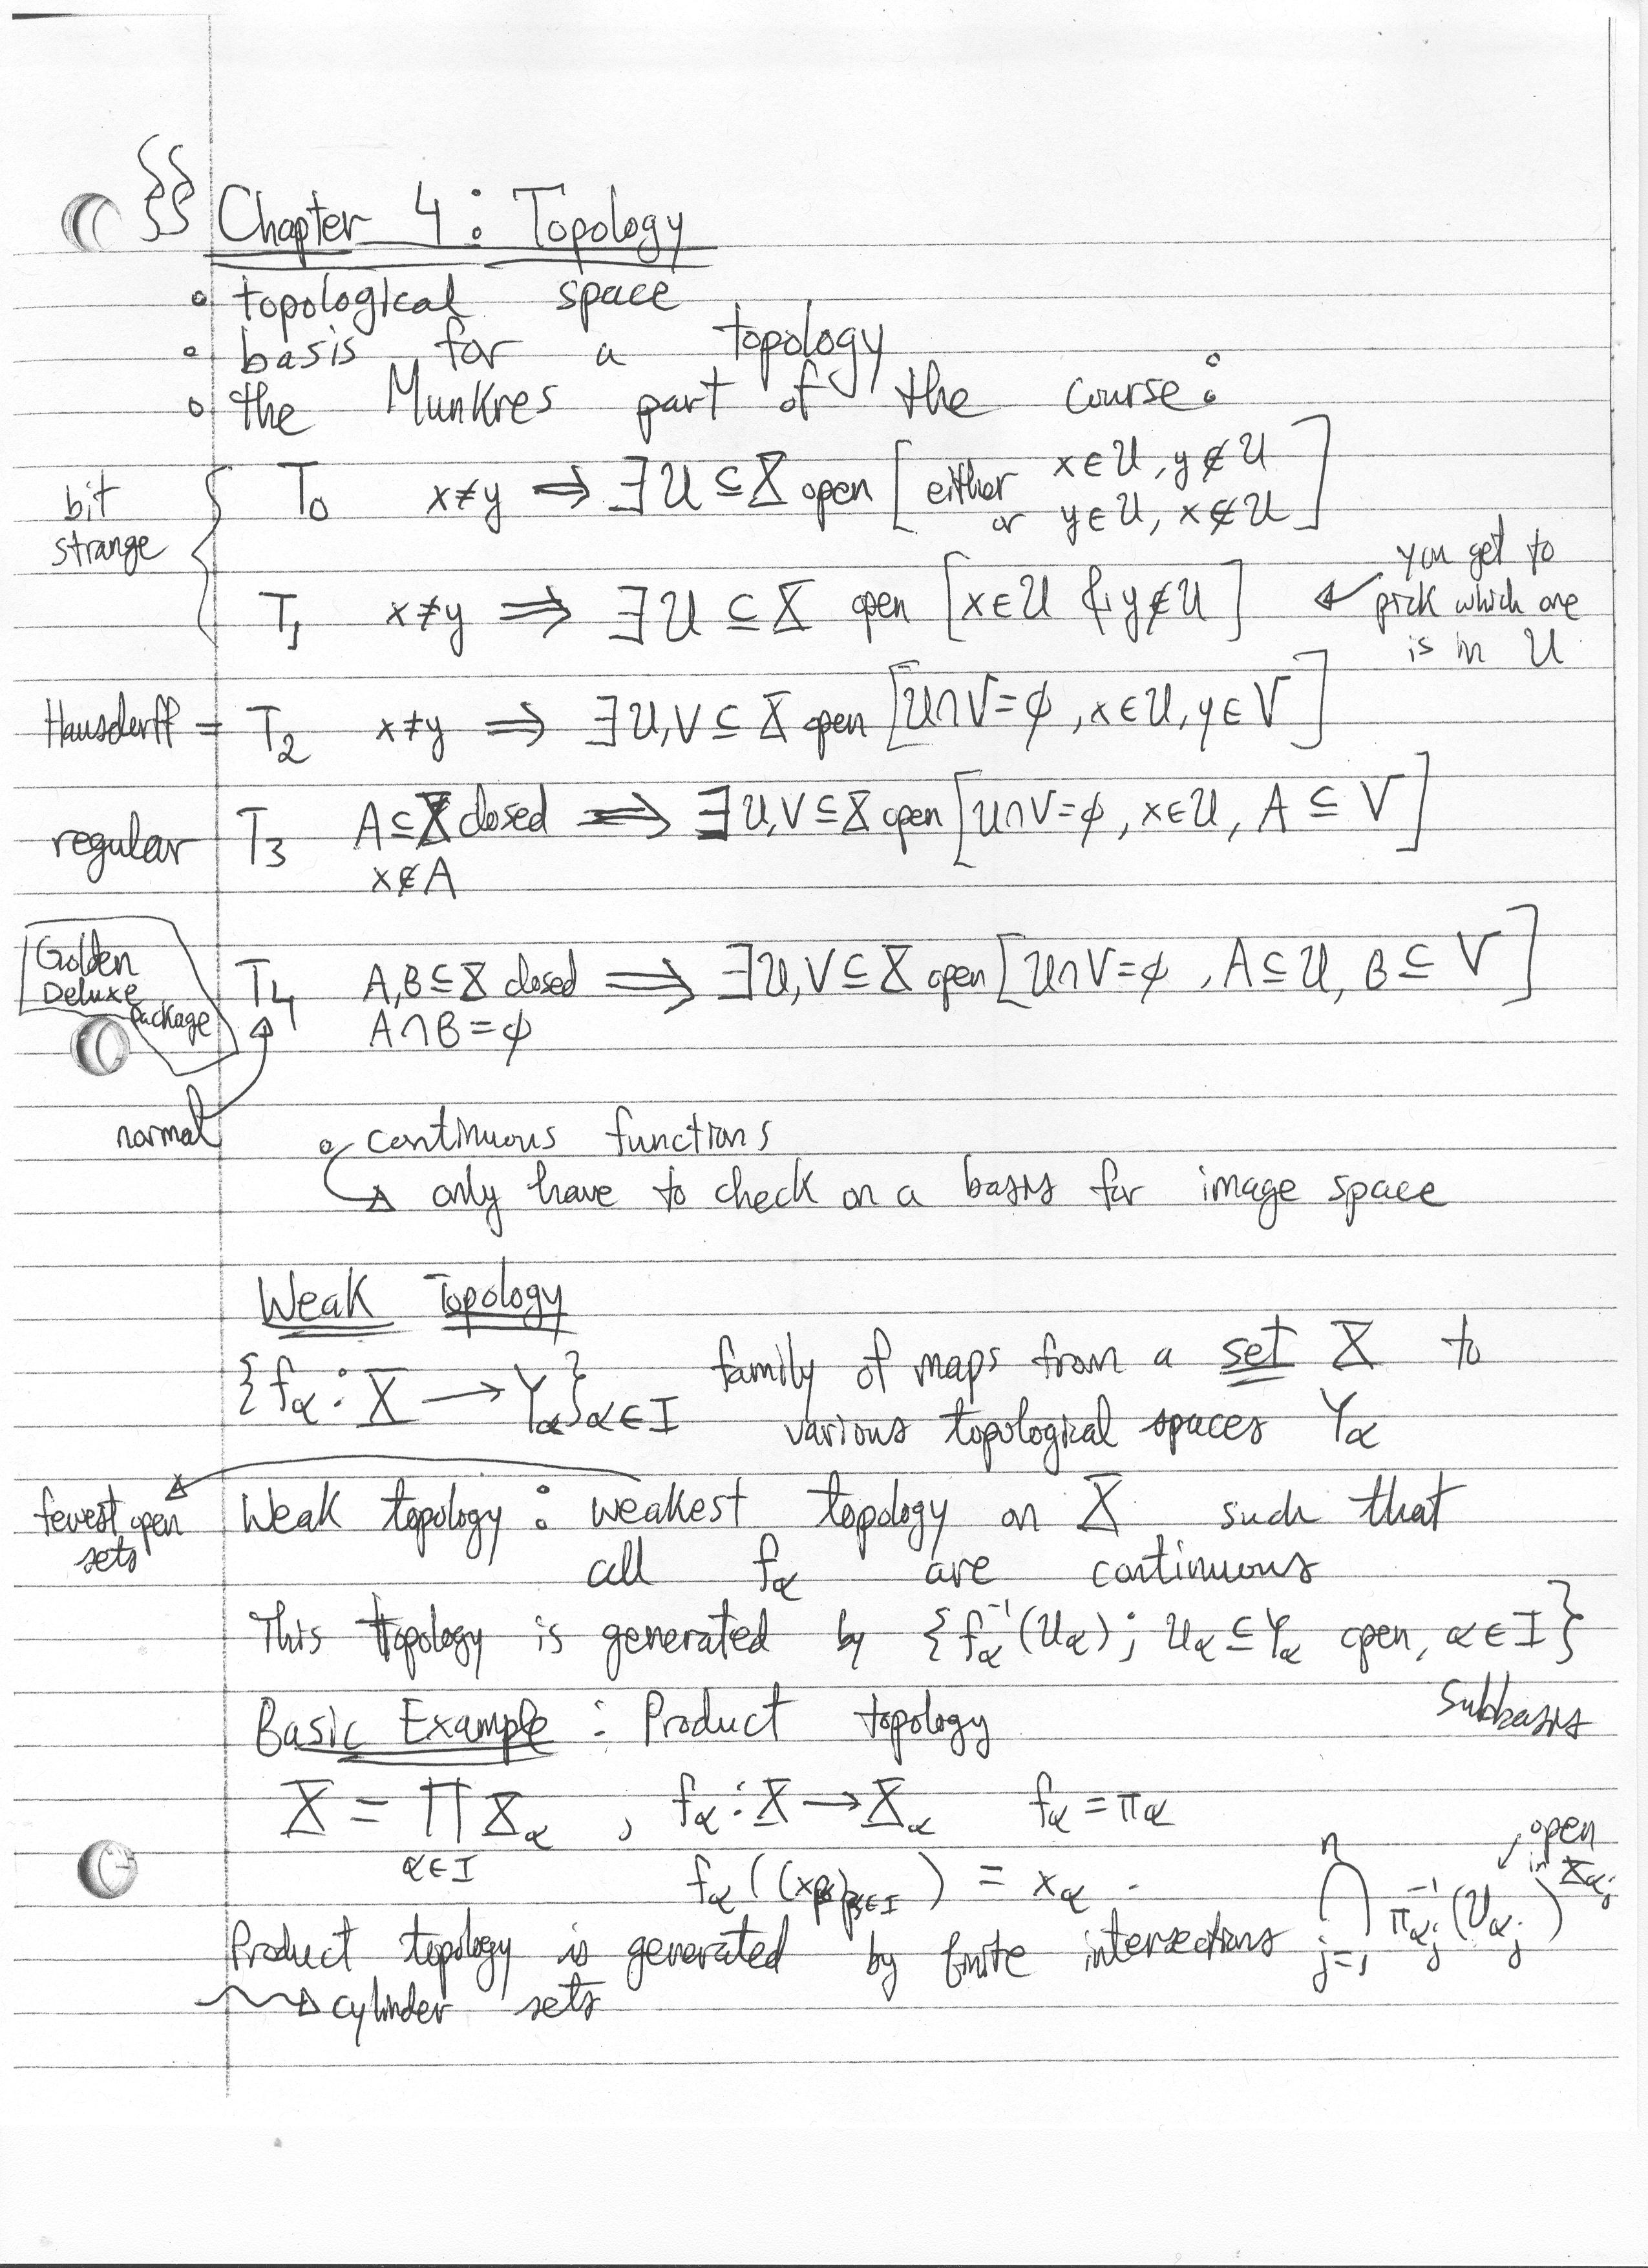 §§ Chapter 4: Topology
∘ topological space
∘ basis for a topology
∘ the Munkres part of the course:
bit strange { T₀ x≠y ⟹ ∃ U ⊆ X open [either x∈U, y∉U or y∈U, x∉U]
T₁ x≠y ⟹ ∃ U ⊆ X open [x∈U & y∉U] ← you get to pick which one is in U
Hausdorff = T₂ x≠y ⟹ ∃ U,V ⊆ X open [U∩V=∅, x∈U, y∈V]
regular T₃ A⊆X closed x∉A ⟹ ∃ U,V ⊆ X open [U∩V=∅, x∈U, A ⊆ V]
Golden Deluxe Package T₄ A,B⊆X closed A∩B=∅ ⟹ ∃ U,V ⊆ X open [U∩V=∅, A⊆U, B⊆V]
normal
∘ continuous functions
↳ only have to check on a basis for image space
Weak Topology
{f_α : X → Y_α}_α∈I family of maps from a set X to
various topological spaces Y_α
fewest open sets
Weak topology: weakest topology on X such that
all f_α are continuous
This topology is generated by {f_α⁻¹(U_α); U_α ⊆ Y_α open, α∈I}
Subbasis
Basic Example: Product topology
X = ∏_α∈I X_α , f_α : X → X_α f_α = π_α
f_α((x_β)_β∈I) = x_α .
Product topology is generated by finite intersections ⋂_{j=1}^n π_{α_j}⁻¹(U_{α_j}) open in X_{α_j}
⇝ cylinder sets